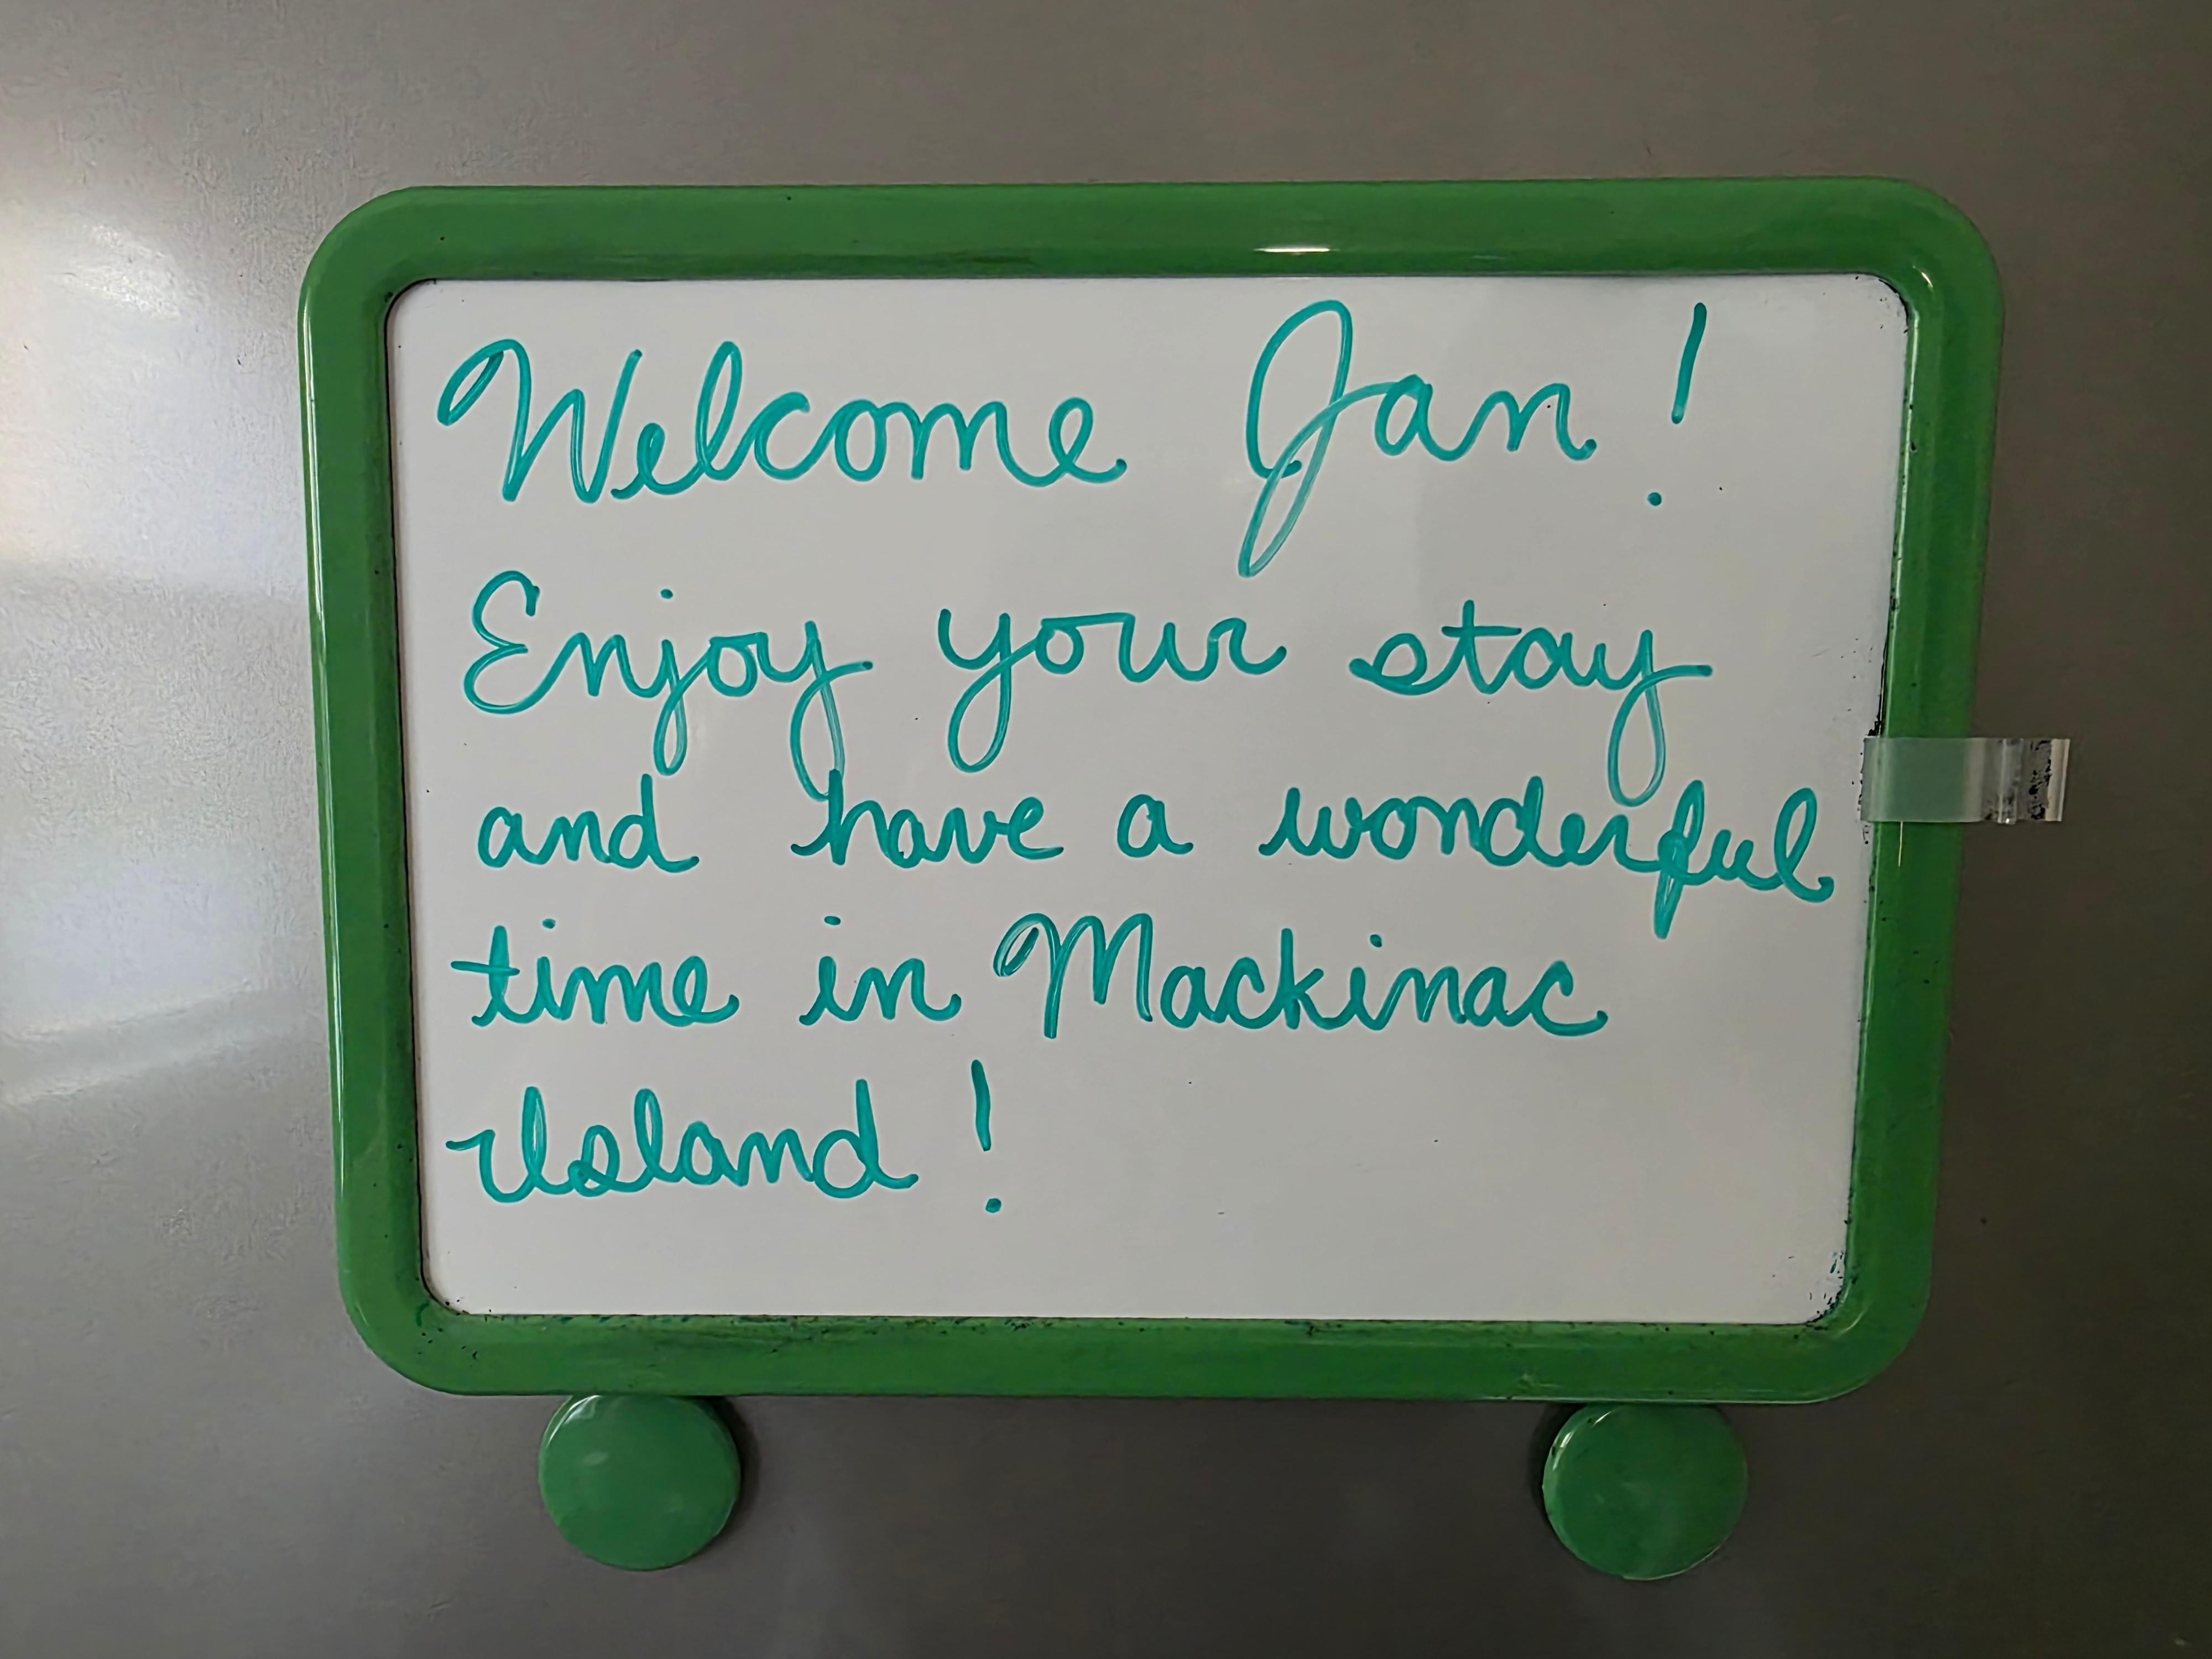 Welcome Jan!
Enjoy your stay
and have a wonderful
time in Mackinac
Island!